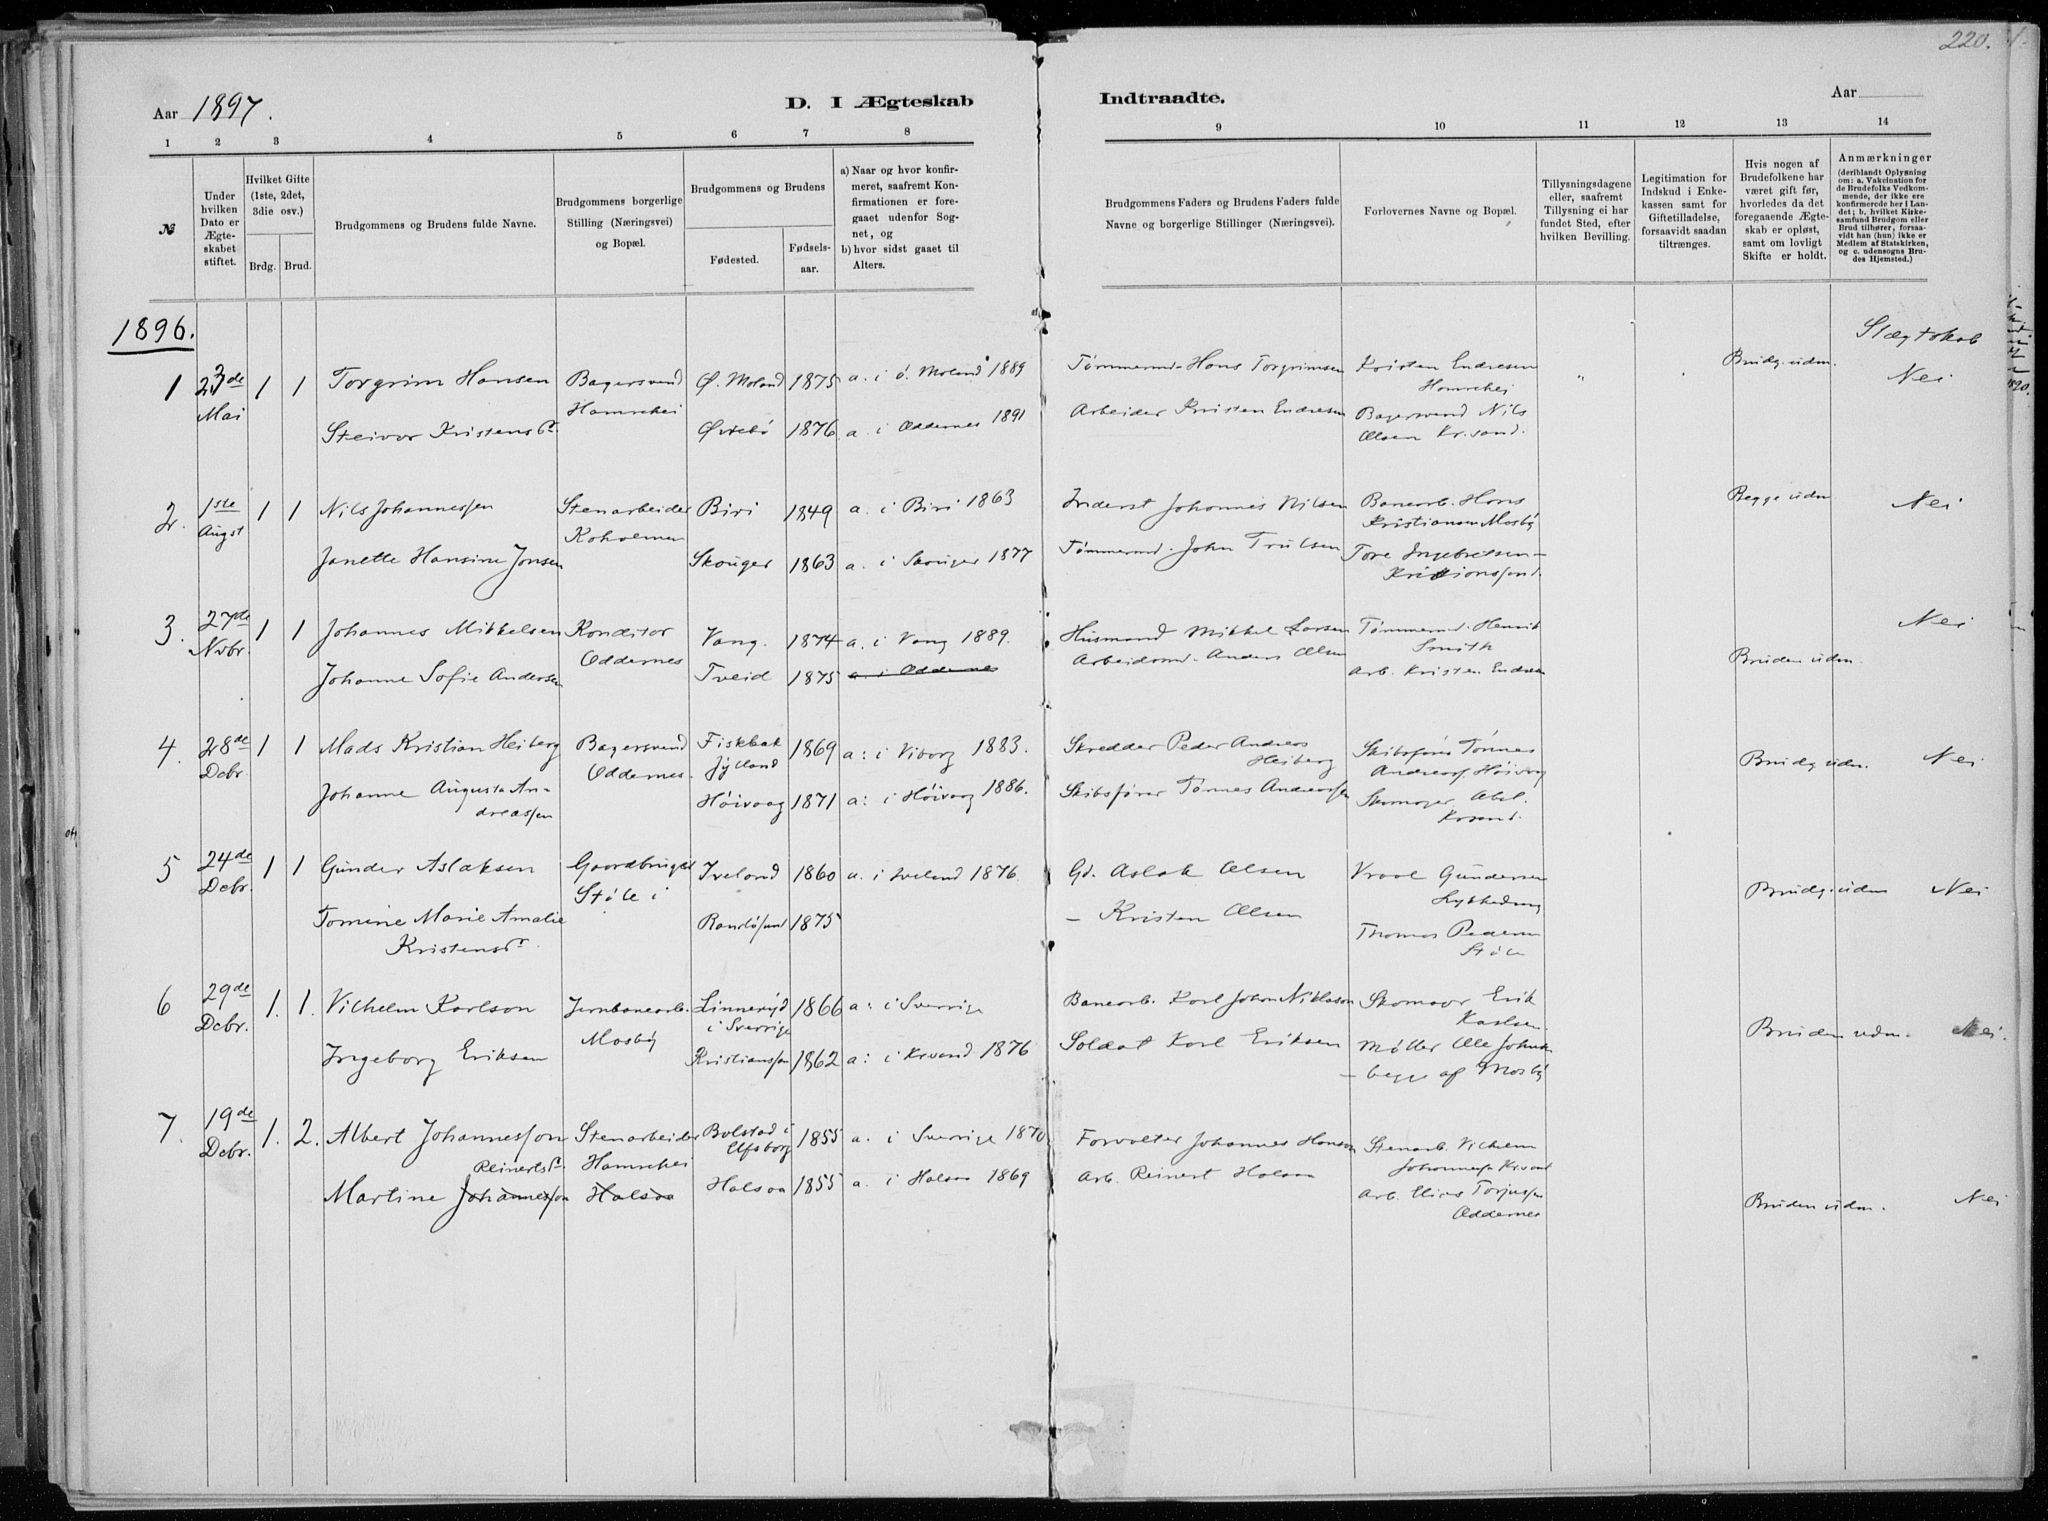 220.
Aar 1897.
D. I Ægteskab
Indtraadte.
Aar
1 2 3 4 5 6 7 8 9 10 11 12 13 14
№
Under hvilken Dato er Ægteskabet stiftet.
Hvilket Gifte (1ste, 2det, 3die osv.)
Brdg. Brud.
Brudgommens og Brudens fulde Navne.
Brudgommens borgerlige Stilling (Næringsvei) og Bopæl.
Brudgommens og Brudens
Fødested.
Fødselsaar.
a) Naar og hvor konfirmeret, saafremt Konfirmationen er foregaaet udenfor Sognet, og
b) hvor sidst gaaet til Alters.
Brudgommens Faders og Brudens Faders fulde Navne og borgerlige Stillinger (Næringsvei).
Forlovernes Navne og Bopæl.
Tillysningsdagene eller, saafremt Tillysning ei har fundet Sted, efter hvilken Bevilling.
Legitimation for Indskud i Enkekassen samt for Giftetilladelse, forsaavidt saadan tiltrænges.
Hvis nogen af Brudefolkene har været gift før, hvorledes da det foregaaende Ægteskab er opløst, samt om lovligt Skifte er holdt.
Anmærkninger (deriblandt Oplysning om: a. Vakcination for de Brudefolks Vedkommende, der ikke ere konfirmerede her i Landet; b. hvilket Kirkesamfund Brudgom eller Brud tilhører, forsaavidt han (hun) ikke er Medlem af Statskirken, og c. udensogns Brudes Hjemsted.)
1896.
Slægtskab
1 23de Mai 1 1 Torgrim Hansen Bagersvend Ø. Moland 1875 a. i Ø. Moland 1889 Tømmermd. Hans Torgrimsen Kristen Endresen Brudg. udm. Nei
Hamrehei
Steivor Kristensdr. Hamrehei Øvrebø 1876 a. i Oddernes 1891 Arbeider Kristen Endresen Bagersvend Nils
Olsen Kr.sand.
2. 1ste Augst 1 1 Nils Johannessen Stenarbeider Biri 1849 a. i Biri 1863 Inderst Johannes Nilsen Banearb. Hans Begge udm Nei
Koholmen Kristiansen Mosby
Janette Hansine Jonsen Skouger 1863 a. i Skouger 1877 Tømmermd. John Trulsen Tore Ingebretsen -
Kristianssand.
3. 27de Nvbr. 1 1 Johannes Mikkelsen Konditor Vang. 1874 a. i Vang 1889. Husmand Mikkel Larsen Tømmermd. Henrik Nei
Oddernes Smith
Johanne Sofie Andersen Tveid 1875 a. i Oddernes Arbeidsmd. Anders Olsen Arb. Kristen Endresen Bruden udm.
4. 28de Dcbr. 1 1 Mads Kristian Heiberg Bagersvend Fiskbæk 1869 a: i Viborg 1883. Skredder Peder Andreas Skibsfører Tønnes Brudg. udm. Nei
Oddernes. Jylland Heiberg Andreass. Høivaag
Johanne Augusta An- Høivaag 1871 a: i Høivaag 1886. Skibsfører Tønnes Andreassen Skomager Abel.
dreassen Krsand.
5 24de Dcbr. 1 1 Gunder Aslaksen Gaardbruger Iveland 1860 a. i Iveland 1876. Gd. Aslak Olsen Vraal Gundersen Brudg. udm Nei
Støle i
Tomine Marie Amalie Randøsund 1875 - Kristen Olsen Thomas Pedersen
Kristensdr. Støle
6 29de Dcbr. 1. 1. Vilhelm Karlson Jernbanearb. Linneryd 1866 a: i Sverrige Banearb. Karl Johan Niklason Skomager Erik
Mosby i Sverrige Karlsen. Bruden udm. Nei.
Ingeborg Eriksen Kristianssan 1862 a: i Krsand 1876 Soldat Karl Eriksen Møller Ole Johnsen
- begge af Mosby
7. 19de Dcbr. 1. 2. Albert Johannesson Stenarbeider Bolstad i 1855 a. i Sverrige 1870 Forvalter Johannes Hanson Stenarb. Vilhelm
Reinertsdr. Hamrehei Elfsborg Johannesen Krsand
Martine Johannesson Halsaa Halsaa 1855 a. i Halsaa 1869 Arb. Reinert Halsaa Arb. Elias Torjussen Bruden udm. Nei
Oddernes